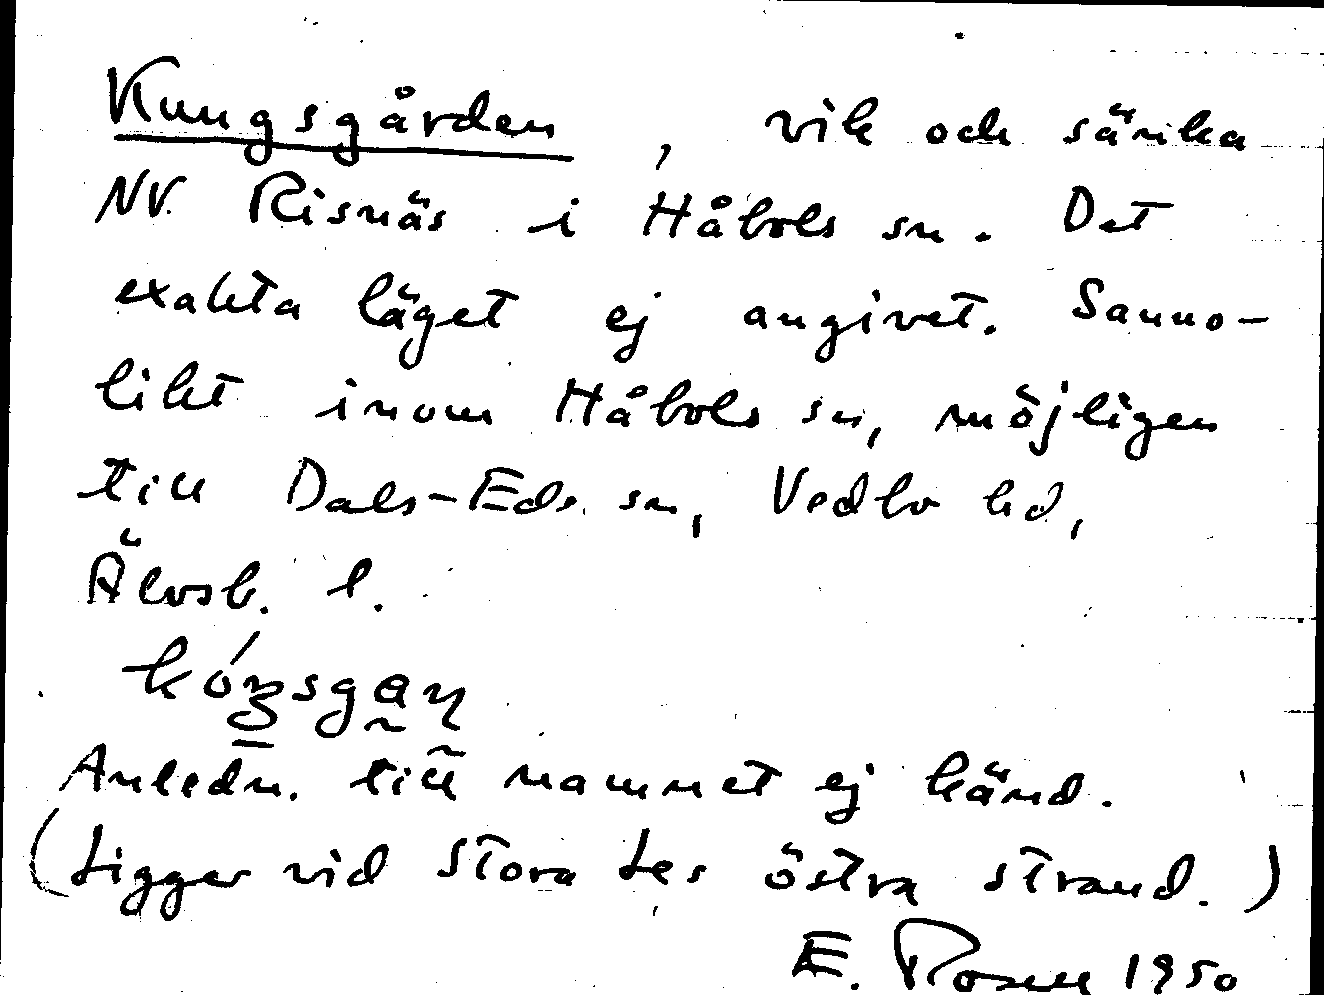 Kungsgården, vik och sänka
NV. Risnäs i Håbols sn. Det
exakta läget ej angivet. Sanno-
likt inom Håbols sn, möjligen
till Dals-Eds sn, Vedbo hd,
Älvsb. l.
Anledn. till namnet ej känd.
(Ligger vid Stora Les östra strand.)
E. Rosell 1950